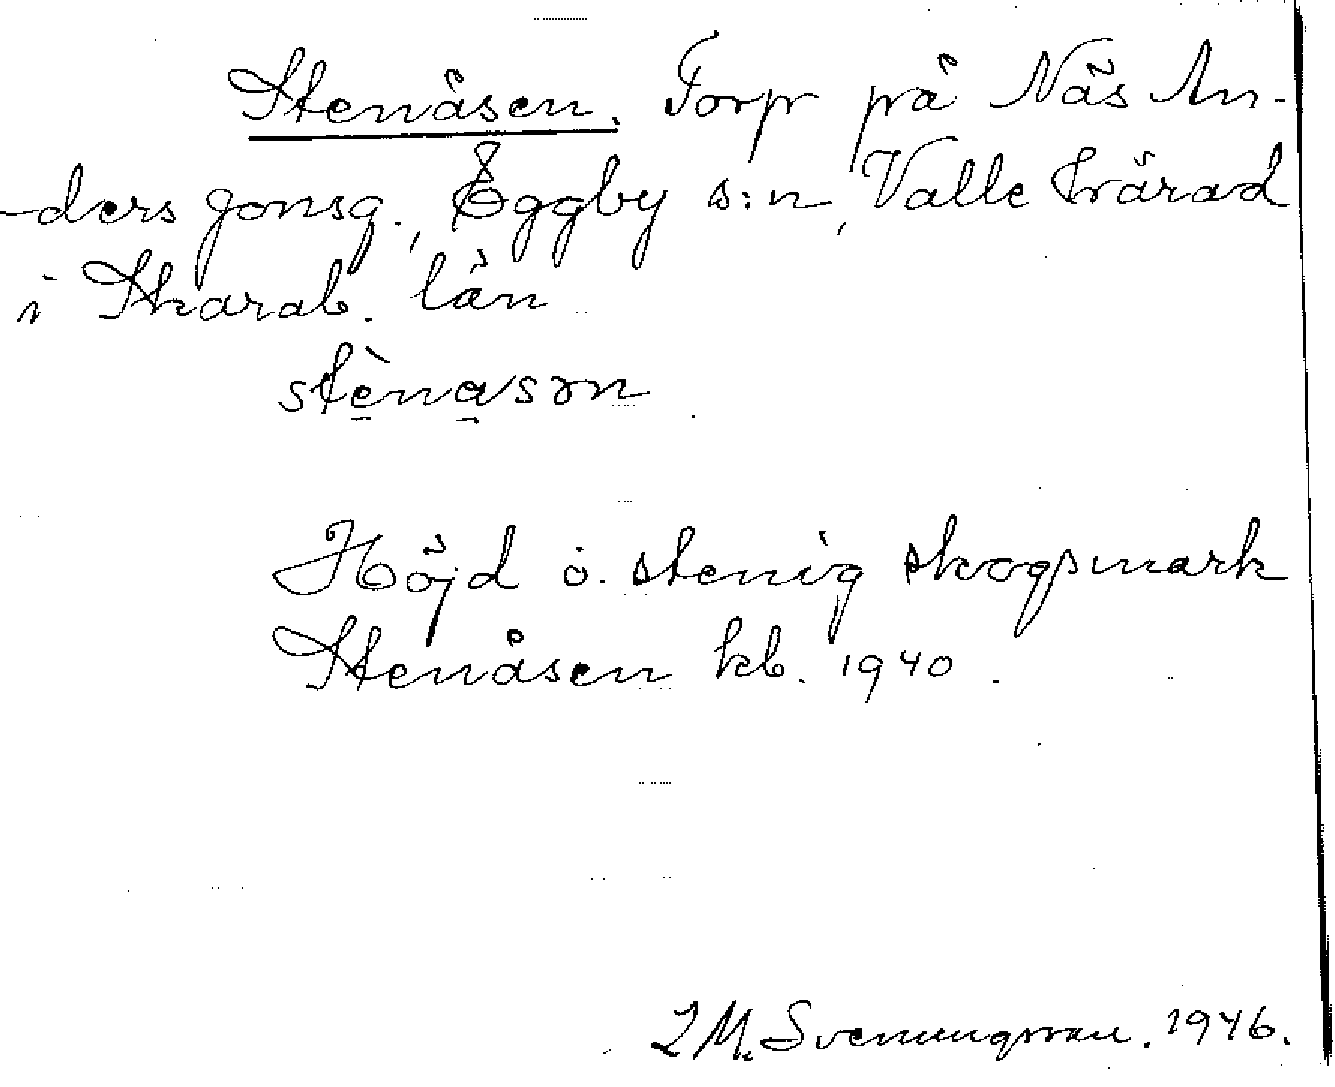 Stenåsen. Torp på Näs An-
ders Jonsg., Eggby s:n, Valle härad
i Skarab. län
stènasən
Höjd o. stenig skogsmark
Stenåsen kb. 1940.
Svenungsson. 1946.